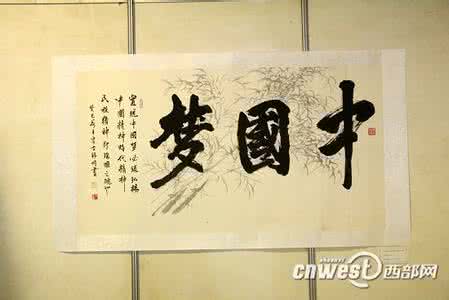 中國梦
實現中國梦必須弘揚
中國精神時代精神
民族精神
癸巳
書
cnwest西部网